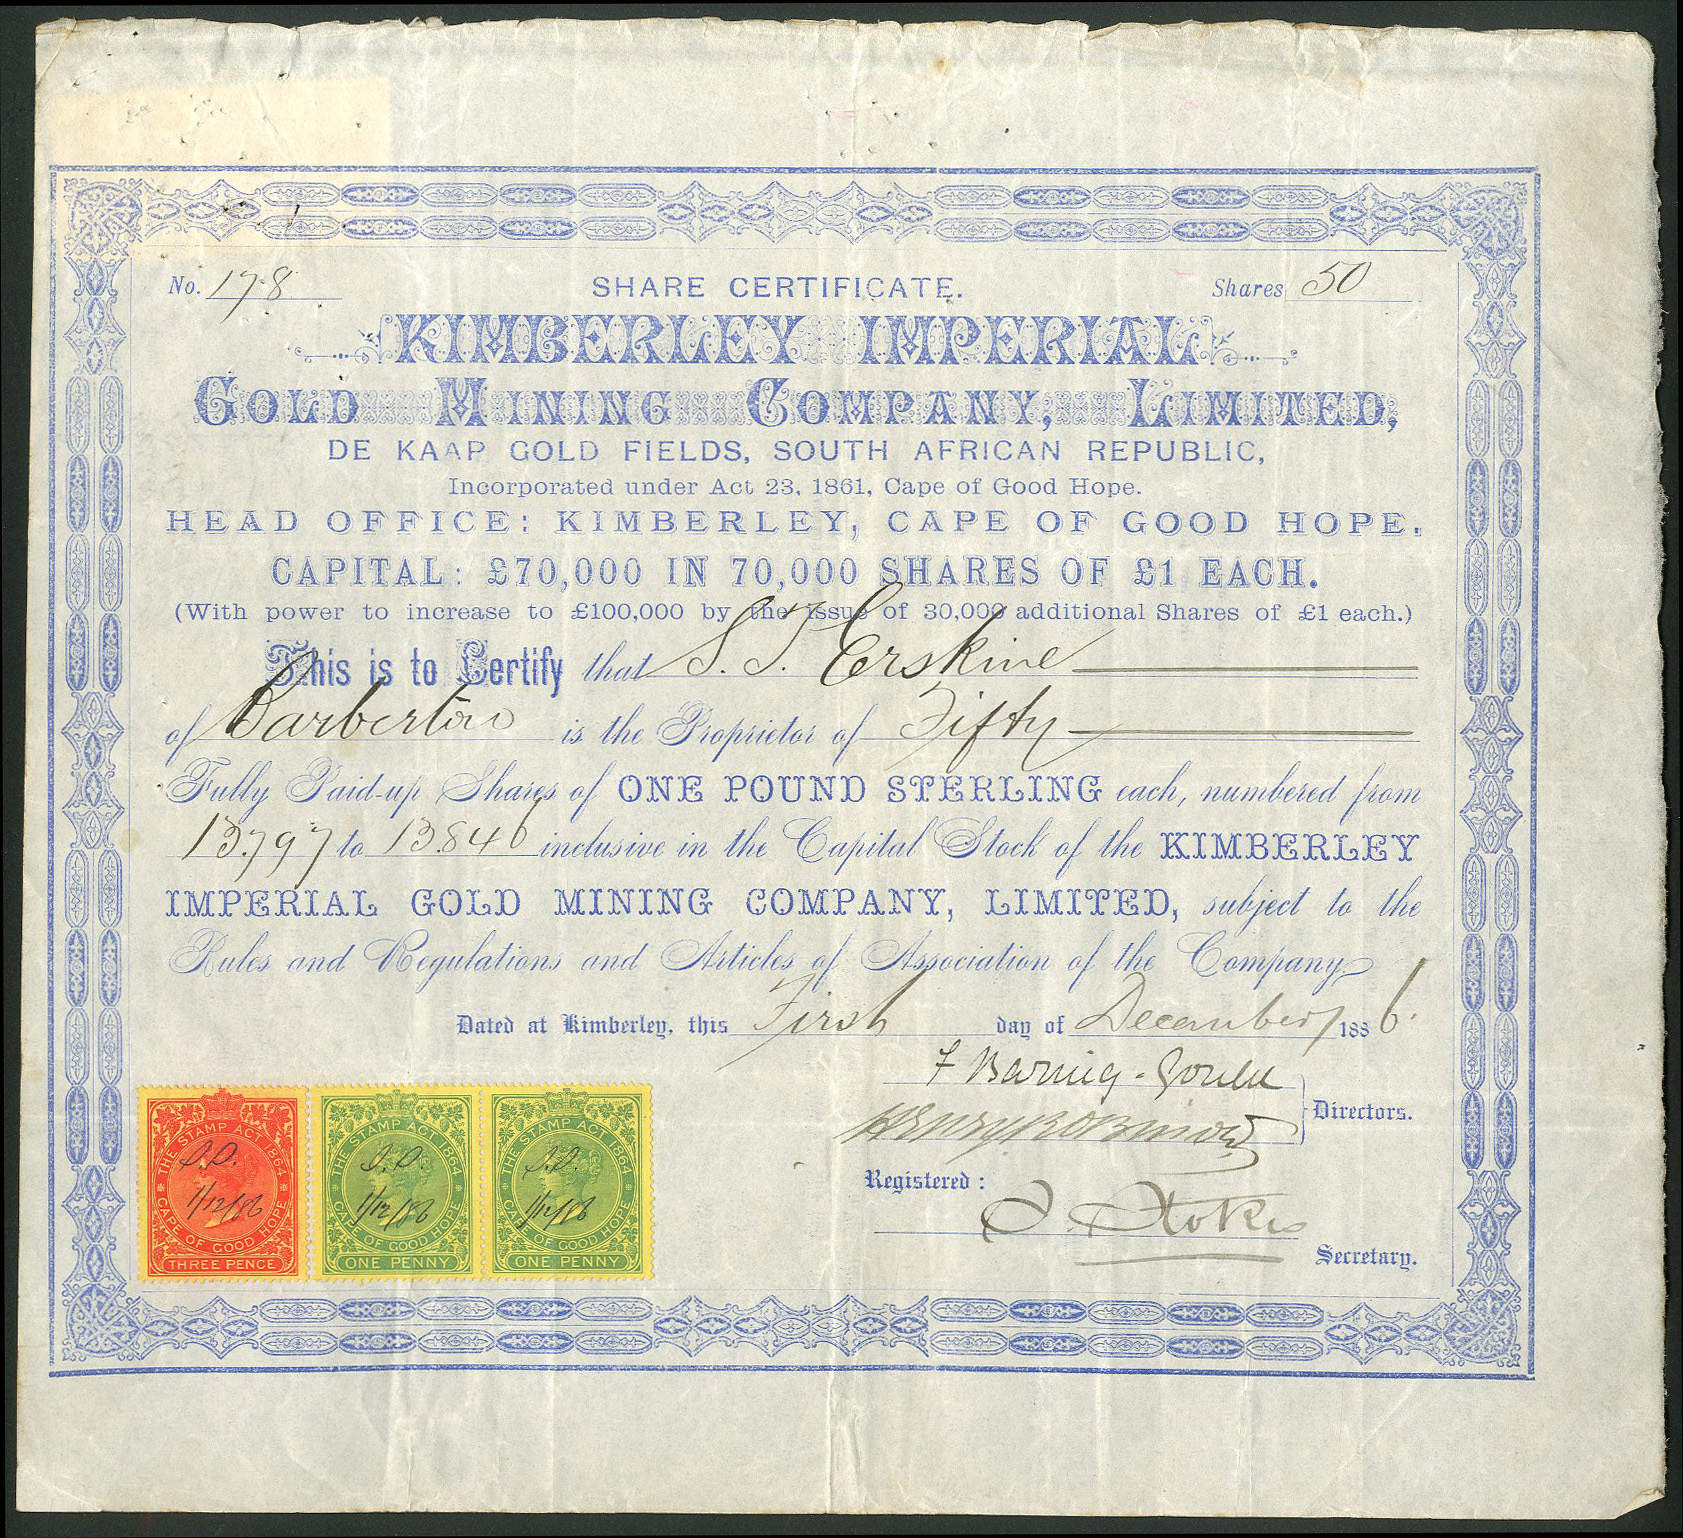 No. 178 SHARE CERTIFICATE. Shares 50
KIMBERLEY IMPERIAL
GOLD MINING COMPANY, LIMITED,
DE KAAP GOLD FIELDS, SOUTH AFRICAN REPUBLIC,
Incorporated under Act 23, 1861, Cape of Good Hope.
HEAD OFFICE: KIMBERLEY, CAPE OF GOOD HOPE.
CAPITAL: £70,000 IN 70,000 SHARES OF £1 EACH.
(With power to increase to £100,000 by the issue of 30,000 additional Shares of £1 each.)
This is to Certify that S. T. Erskine
of Barberton is the Proprietor of Fifty
Fully Paid-up Shares of ONE POUND STERLING each, numbered from
13797 to 13846 inclusive in the Capital Stock of the KIMBERLEY
IMPERIAL GOLD MINING COMPANY, LIMITED, subject to the
Rules and Regulations and Articles of Association of the Company
Dated at Kimberley, this First day of December 1886.
F Baring-Gould
Henry Robinow
Directors.
Registered:
Stokes
Secretary.
THE STAMP ACT 1864
1/12/86
CAPE OF GOOD HOPE
THREE PENCE
THE STAMP ACT 1864
1/12/86
CAPE OF GOOD HOPE
ONE PENNY
THE STAMP ACT 1864
1/12/86
CAPE OF GOOD HOPE
ONE PENNY